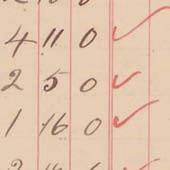 4 11 0 ✓
2 5 0 ✓
1 16 0 ✓